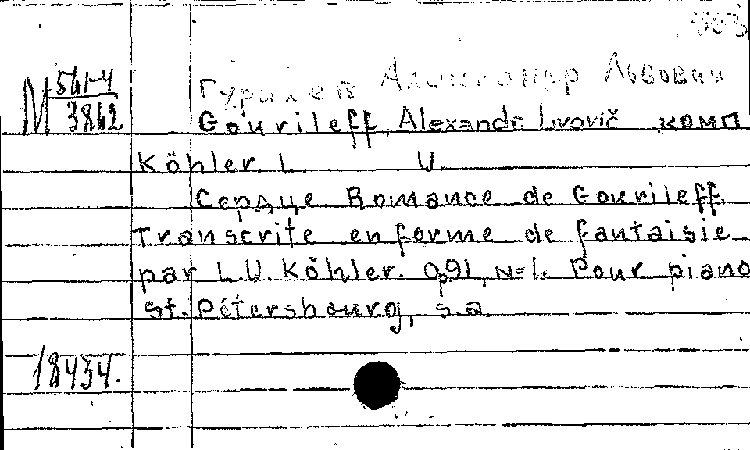 М 561-4
3862
Гурилев Александр Львович
Gourileff, Alexandr Lvovič комп
Köhler L. U.
Сердце Romance de Gourileff.
Transcrite en forme de fantaisie
par L.U. Köhler. Op91, N=1. Pour piano
St. Pétersbourg, s.a.
18434.